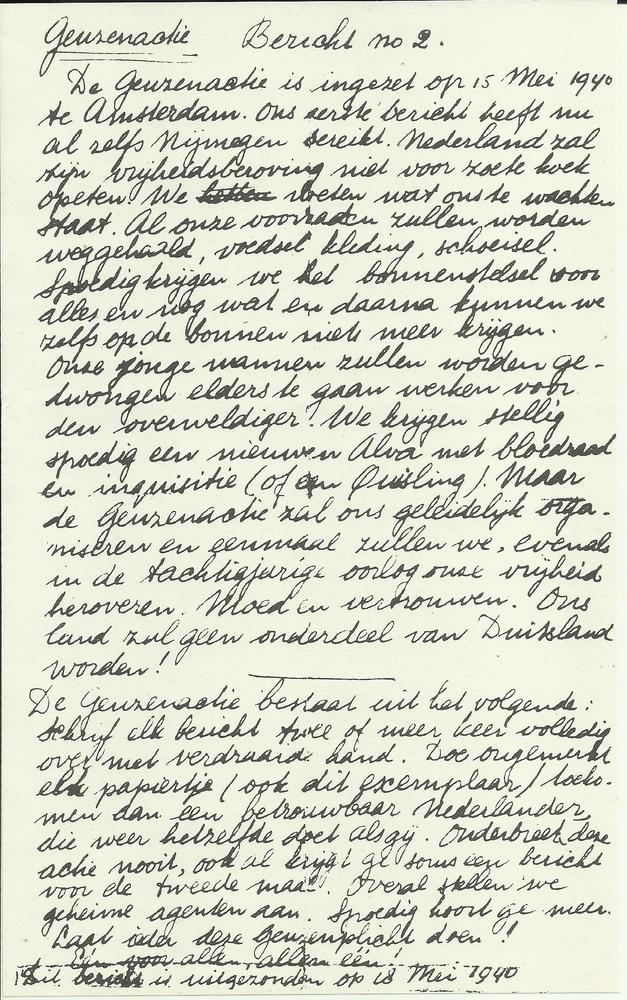 Geuzenactie Bericht no 2.
De Geuzenactie is ingezet op 15 Mei 1940
te Amsterdam. Ons eerste bericht heeft nu
al zelfs Nijmegen bereikt. Nederland zal
zijn vrijheidsberoving niet voor zoete koek
opeten. We weten wat ons te wachten
staat. Al onze voorraden zullen worden
weggehaald, voedsel kleding, schoeisel.
Spoedig krijgen we het bonnenstelsel voor
alles en nog wat en daarna kunnen we
zelfs op de bonnen niets meer krijgen.
Onze jonge mannen zullen worden ge-
dwongen elders te gaan werken voor
den overweldiger. We krijgen stellig
spoedig een nieuwen Alva met bloedraad
en inquisitie (of een Quisling). Maar
de Geuzenactie zal ons geleidelijk orga-
niseren en eenmaal zullen we, evenals
in de tachtigjarige oorlog onze vrijheid
heroveren. Moed en vertrouwen. Ons
land zal geen onderdeel van Duitsland
worden!
De Geuzenactie bestaat uit het volgende:
Schrijf elk bericht twee of meer keer volledig
over met verdraaide hand. Doe ongemerkt
elk papiertje (ook dit exemplaar) toeko-
men aan een betrouwbaar Nederlander,
die weer hetzelfde doet als gij. Onderbreekt deze
actie nooit, ook al krijgt ge soms een bericht
voor de tweede maal. Overal stellen we
geheime agenten aan. Spoedig hoort ge meer.
Laat ieder deze Geuzenplicht doen!
Eén voor allen, allen één!
Dit bericht is uitgezonden op 18 Mei 1940